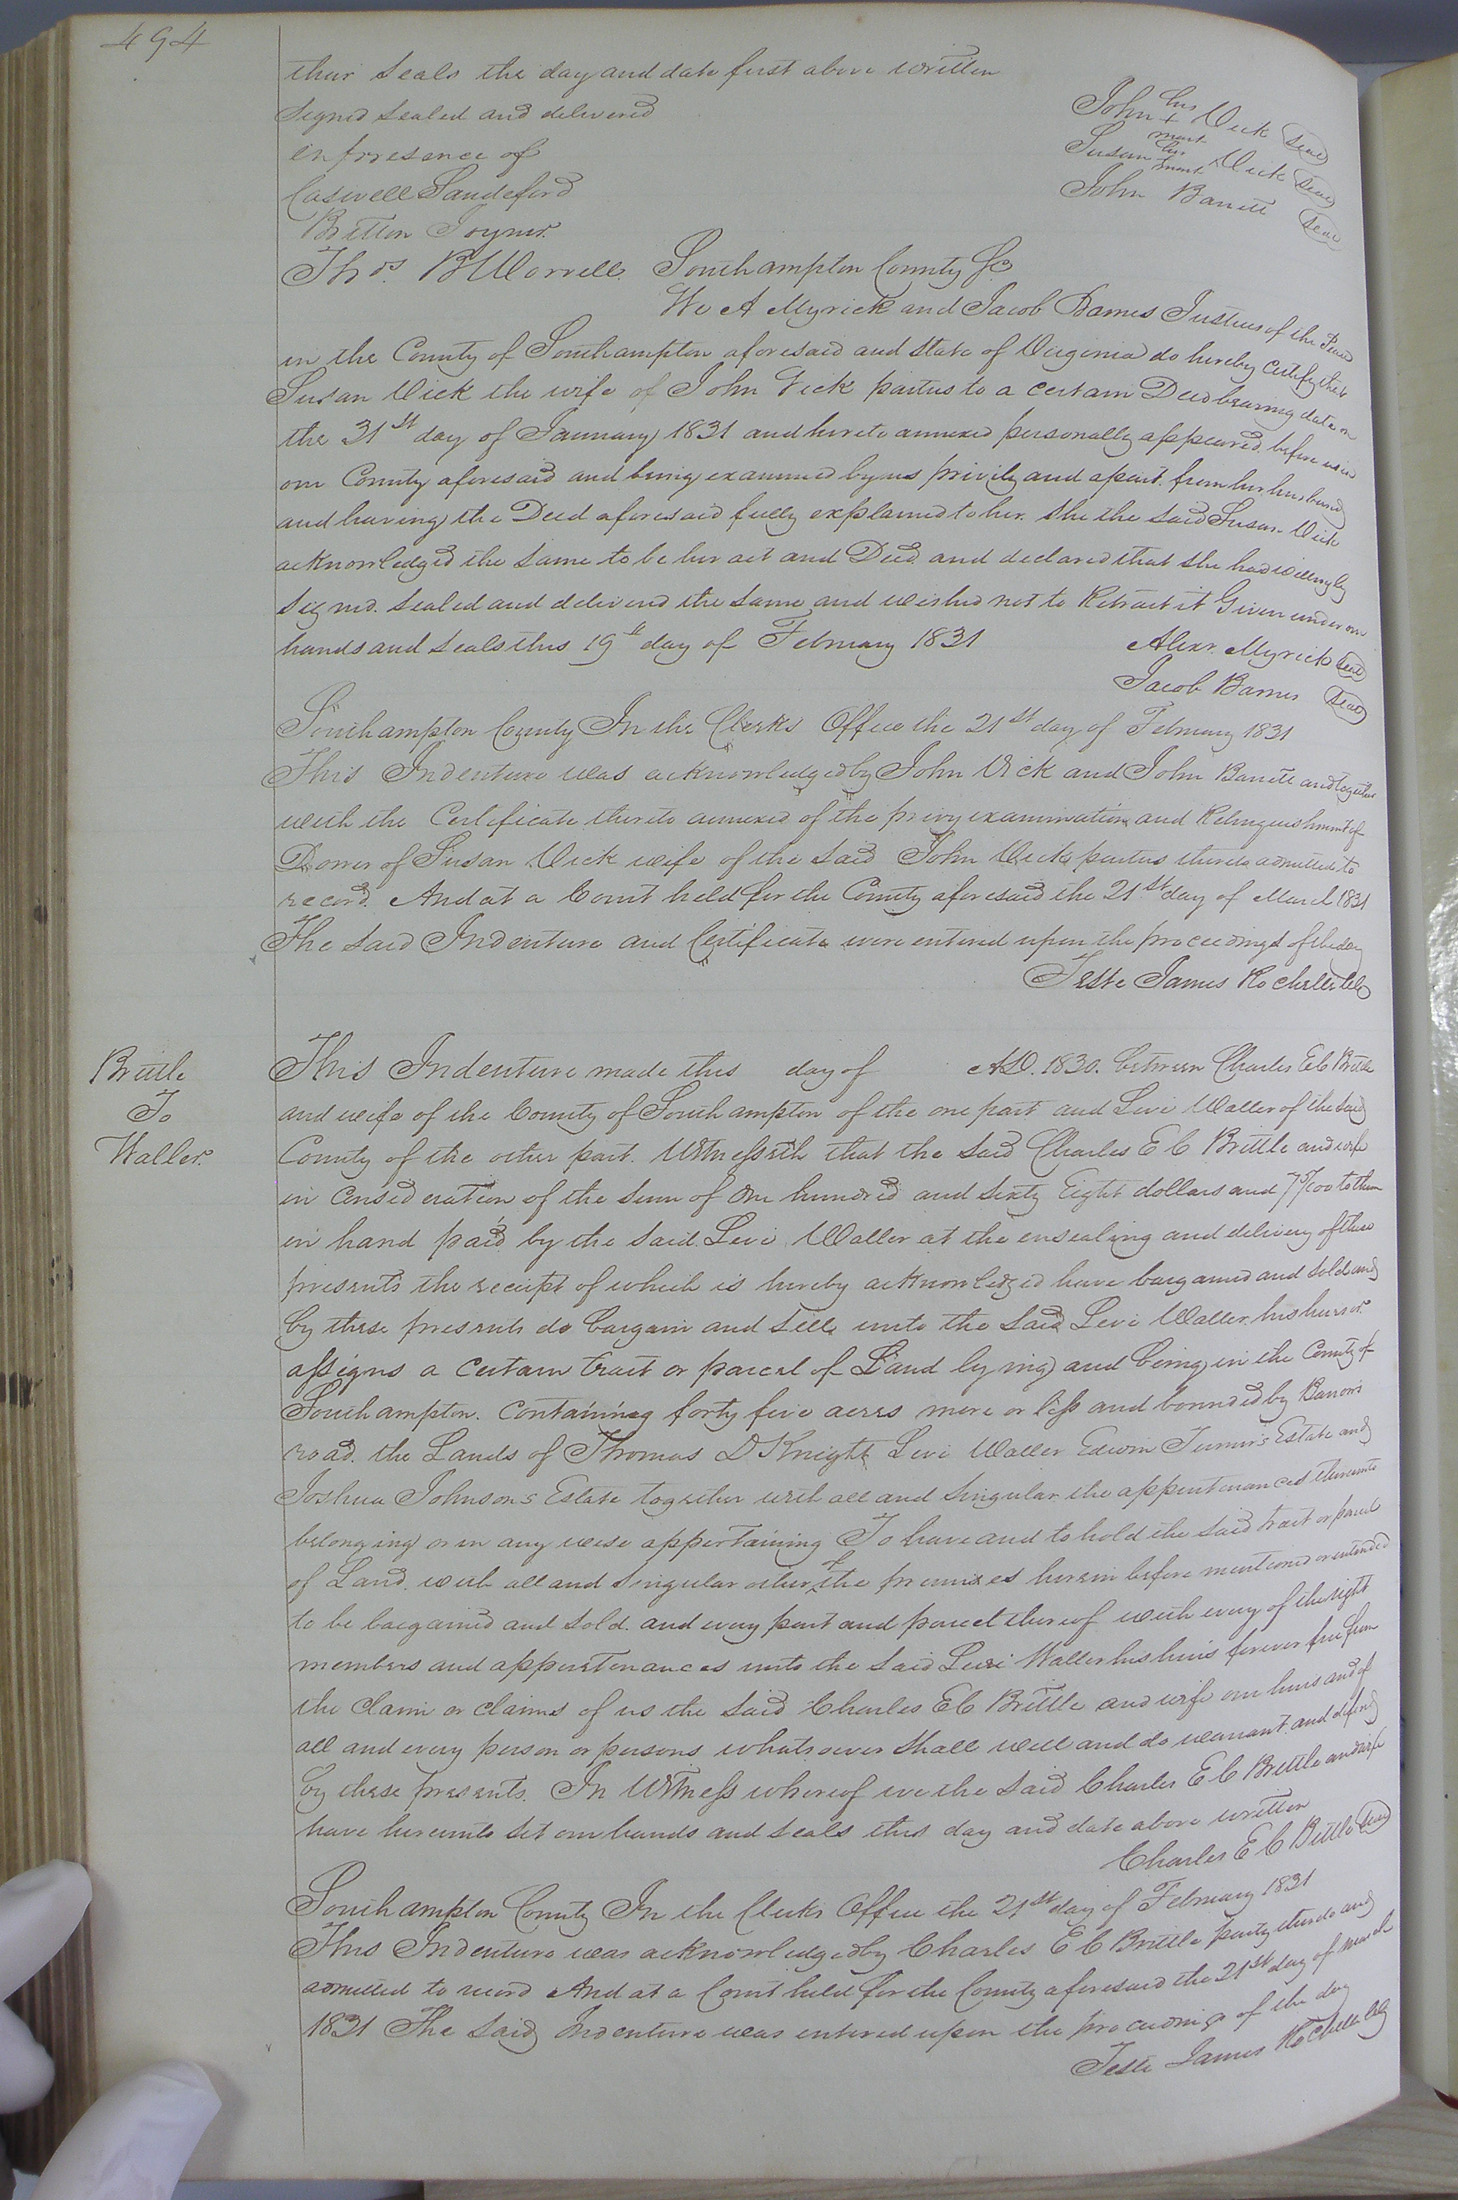 494
their seals the day and date first above written
Signed sealed and delivered
in presence of
Caswell Sandeford
Britton Joyner
Thos. B Worrell
John his + mark Vick Seal
Susan her mark Vick Seal
John Barrett Seal
Southampton County Sc
We A Myrick and Jacob Barnes Justices of the Peace
in the County of Southampton aforesaid and state of Virginia do hereby certify that
Susan Vick the wife of John Vick parties to a certain Deed bearing date on
the 31st day of January 1831 and hereto annexed personally appeared before us in
our County aforesaid and being examined by us privily and apart from her husband
and having the Deed aforesaid fully explained to her She the said Susan Vick
acknowledged the same to be her act and Deed and declared that she had willingly
signed sealed and delivered the same and wished not to Retract it Given under our
hands and seals this 19th day of February 1831
Alexr. Myrick Seal
Jacob Barnes Seal
Southampton County In the Clerks Office the 21st day of February 1831
This Indenture was acknowledged by John Vick and John Barrett and together
with the Certificate thereto annexed of the privy examination and Relinquishment of
Dower of Susan Vick wife of the said John Vick parties thereto admitted to
record. And at a Court held for the County aforesaid the 21st day of March 1831
The said Indenture and Certificate were entered upon the proceedings of the day
Teste James Rochelle Clk
Brittle
To
Waller
This Indenture made this day of AD. 1830. between Charles E C Brittle
and wife of the County of Southampton of the one part and Levi Waller of the said
County of the other part. Witnesseth that the said Charles E C Brittle and wife
in consideration of the sum of One hundred and sixty Eight dollars and /100 to them
in hand paid by the said Levi Waller at the ensealing and delivery of these
presents the receipt of which is hereby acknowledged have bargained and sold and
by these presents do bargain and sell unto the said Levi Waller his heirs or
assigns a certain tract or parcel of Land lying and being in the County of
Southampton. Containing forty five acres more or less and bounded by Barrow's
road. the Lands of Thomas D Knight Levi Waller Edwin Turner's Estate and
Joshua Johnsons Estate together with all and Singular the appurtenances thereunto
belonging or in any wise appertaining To have and to hold the said tract or parcel
of Land with all and Singular other of the premises herein before mentioned or intended
to be bargained and sold. and every part and parcel thereof with every of the right
members and appurtenances unto the said Levi Waller his heirs forever free from
the claim or claims of us the said Charles E C Brittle and wife our heirs and of
all and every person or persons whatsoever Shall will and do warrant and defend
by these presents. In Witness whereof we the said Charles E C Brittle and wife
have hereunto set our hands and seals this day and date above written
Charles E C Brittle Seal
Southampton County In the Clerks Office the 21st day of February 1831
This Indenture was acknowledged by Charles E C Brittle party thereto and
admitted to record And at a Court held for the County aforesaid the 21st day of March
1831 The Said Indenture was entered upon the proceedings of the day
Teste James Rochelle Clk